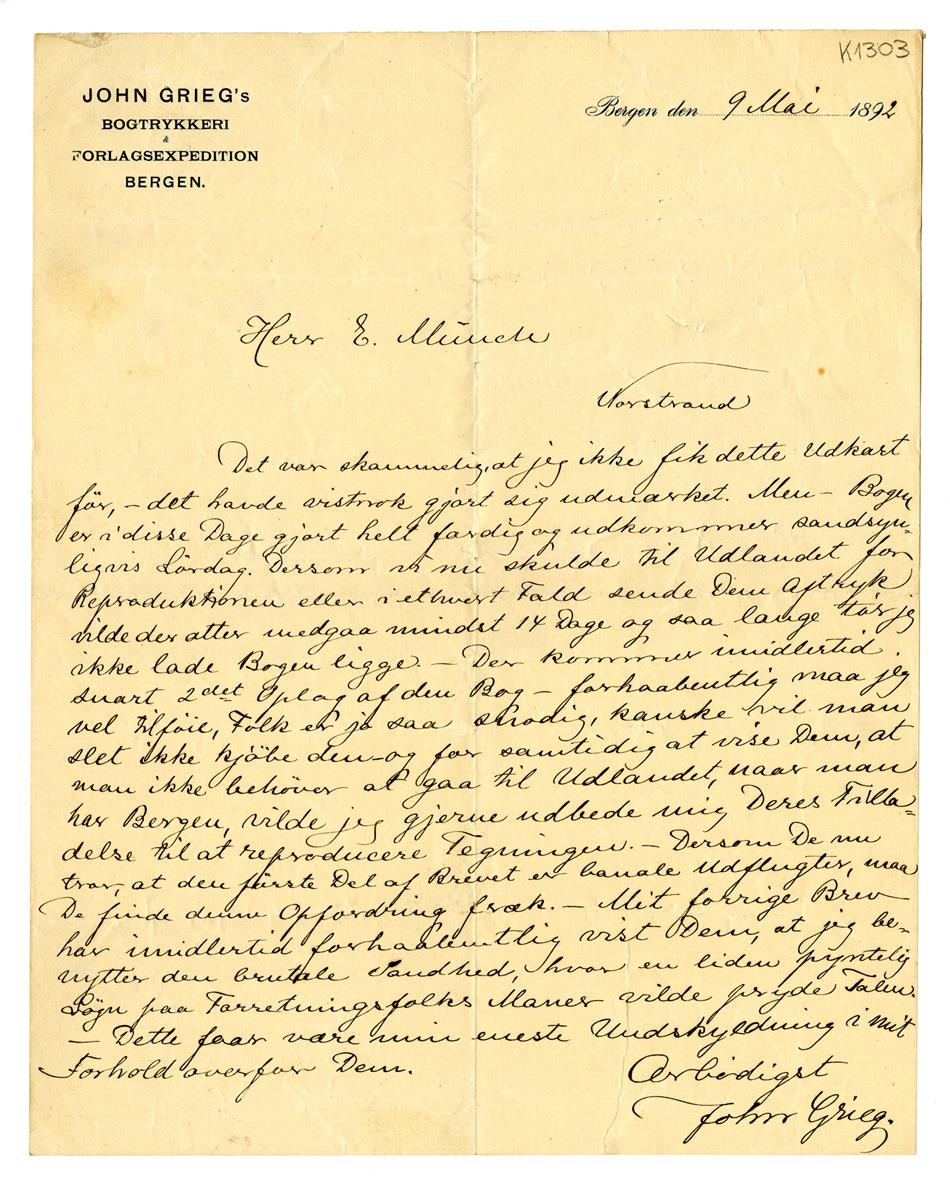 K1303
JOHN GRIEG's
BOGTRYKKERI
&
FORLAGSEXPEDITION
BERGEN.
Bergen den 9 Mai 1892
Herr E. Münch
Norstrand
Det var skammelig, at jeg ikke fik dette Udkast
før, – det havde vistnok gjort sig udmærket. Men – Bogen
er i disse Dage gjort helt færdig og udkommer sandsyn-
ligvis Lørdag. Dersom vi nu skulde til Udlandet for
Reproduktionen eller i ethvert Fald sende Dem Aftryk
vilde der atter medgaa mindst 14 Dage og saa længe tør jeg
ikke lade Bogen ligge. – Der kommer imidlertid
snart 2det Oplag af den Bog – forhaabentlig maa jeg
vel tilføie, Folk er jo saa snodig, kanske vil man
slet ikke kjøbe den – og for samtidig at vise Dem, at
man ikke behøver at gaa til Udlandet, naar man
har Bergen, vilde jeg gjerne udbede mig Deres Tilla-
delse til at reproducere Tegningen. – Dersom De nu
tror, at den første Del af Brevet er banale Udflugter, maa
De finde denne Opfordring fræk. – Mit forrige Brev
har imidlertid forhaabentlig vist Dem, at jeg be-
nytter den brutale Sandhed, hvor en liden pyntelig
Løgn paa Forretningsfolks Maner vilde pryde Talen.
– Dette faar være min eneste Undskyldning i mit
Forhold overfor Dem.
Ærbødigst
John Grieg.